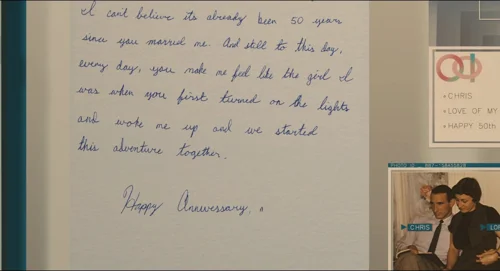 I can't believe its already been 50 years
since you married me. And still to this day,
every day, you make me feel like the girl I
was when you first turned on the lights
and woke me up and we started
this adventure together.
Happy Anniversary.
CHRIS
LOVE OF MY
HAPPY 50th
CHRIS